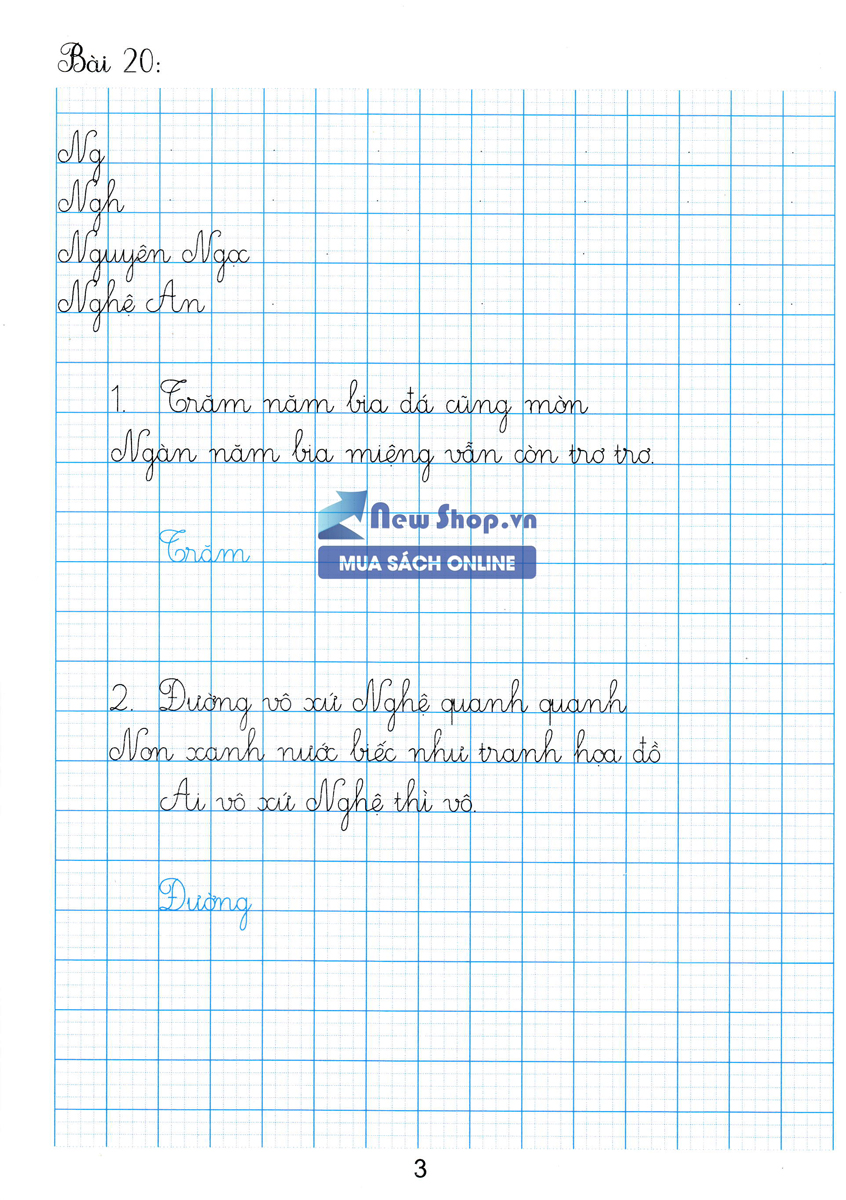 Bài 20:
Ng
Ngh
Nguyên Ngọc
Nghệ An
1. Trăm năm bia đá cũng mòn
Ngàn năm bia miệng vẫn còn trơ trơ.
New Shop.vn
Trăm
MUA SÁCH ONLINE
2. Đường vô xứ Nghệ quanh quanh
Non xanh nước biếc như tranh họa đồ
Ai vô xứ Nghệ thì vô.
Đường
3